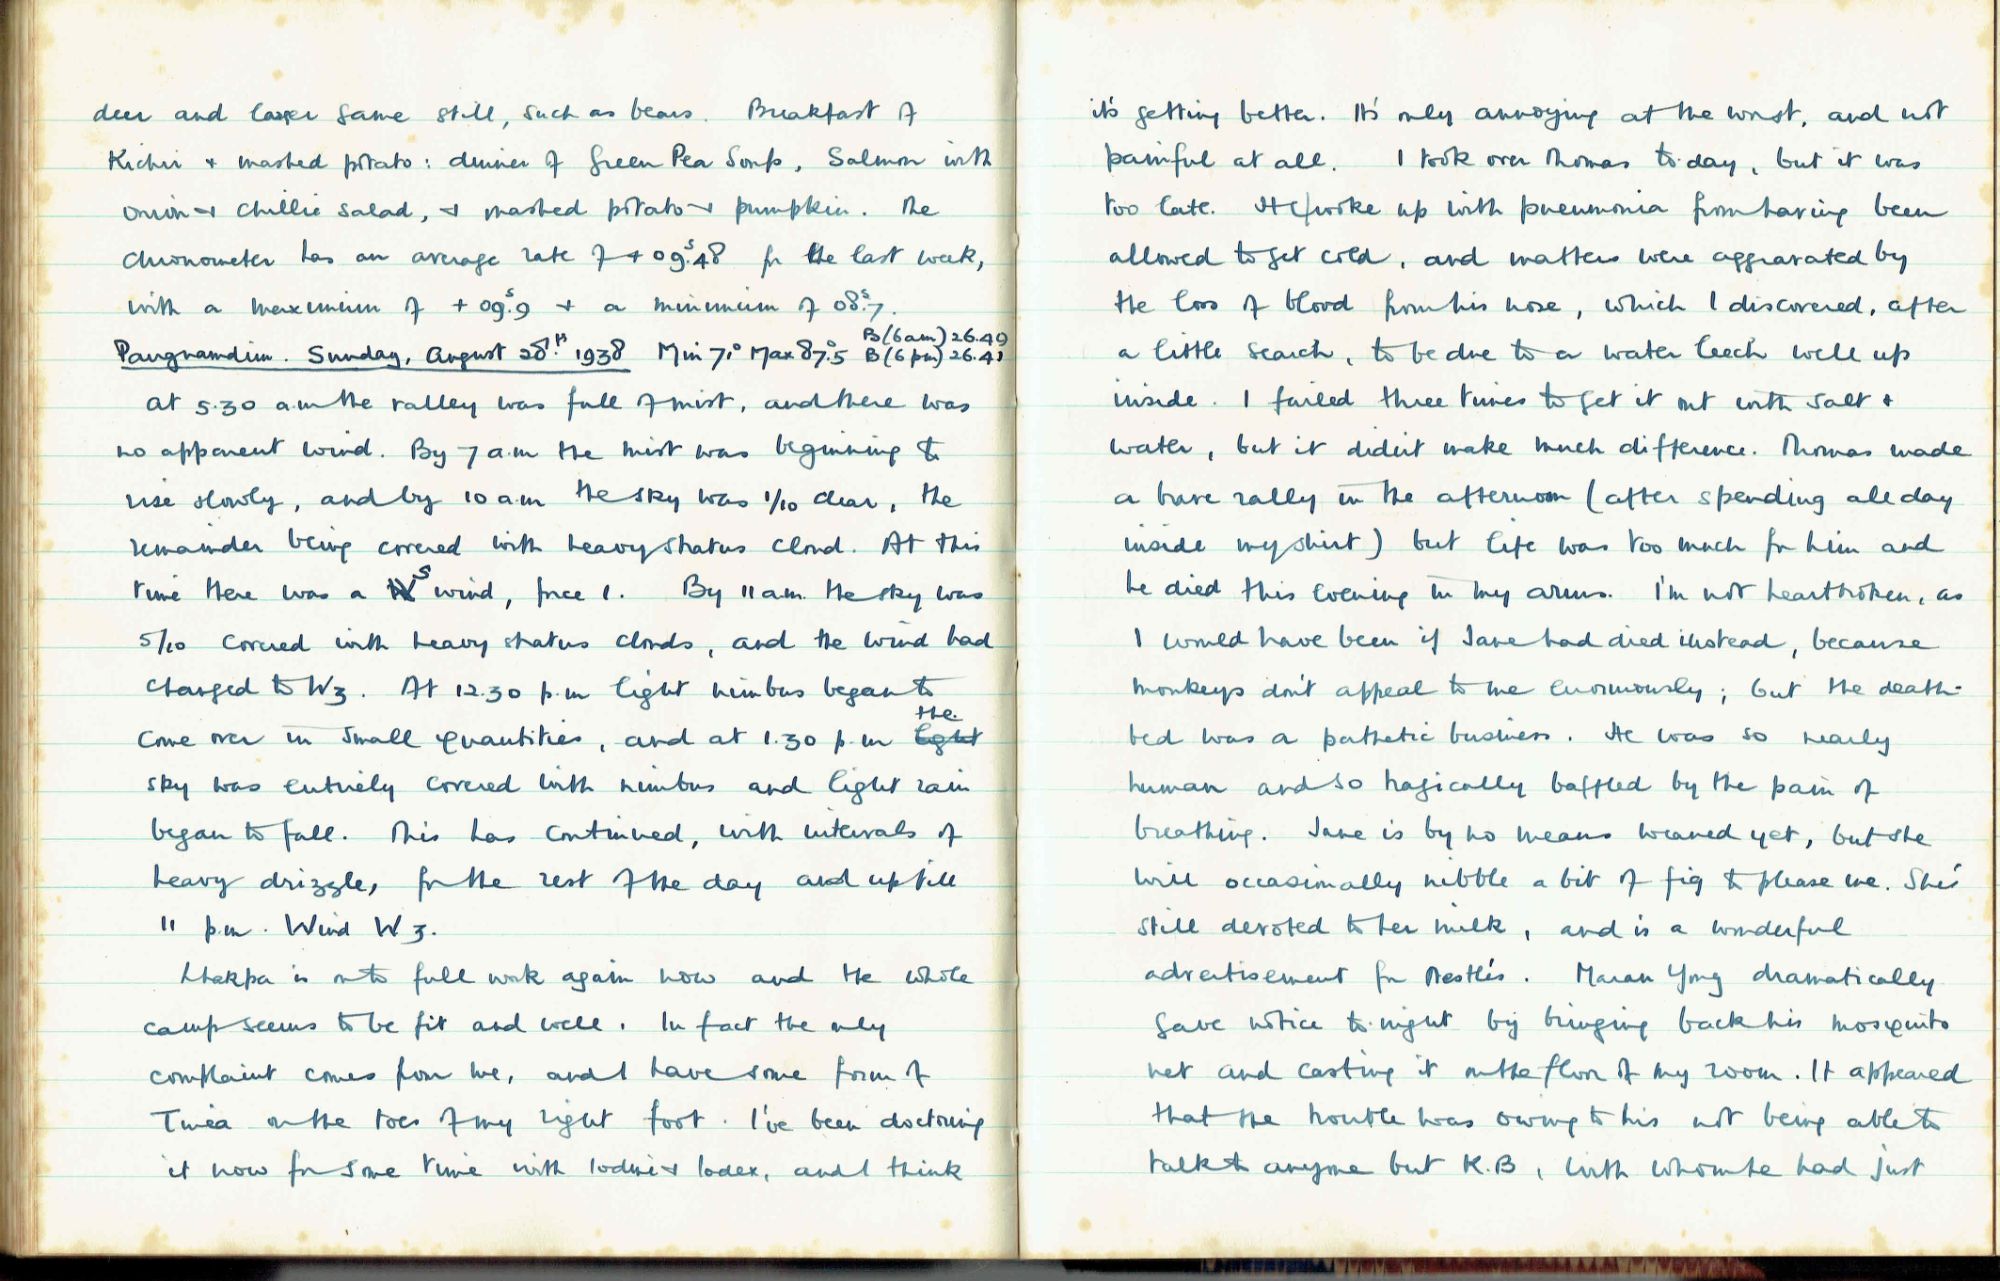 deer and larger game still, such as bears. Breakfast of
Kichri & mashed potato: dinner of Green Pea Soup, Salmon with
onion & chillie salad, & mashed potato & pumpkin. The
chronometer has an average rate of + 09ˢ.48 for the last week,
with a maximum of + 09ˢ.9 & a minimum of 08ˢ.7.
Pangnamdim. Sunday, August 28ᵗʰ. 1938 Min 71° Max 87°.5 B(6am) 26.49 B(6pm) 26.41
at 5.30 a.m the valley was full of mist, and there was
no apparent wind. By 7 a.m the mist was beginning to
rise slowly, and by 10 a.m the sky was 1/10 clear, the
remainder being covered with heavy stratus cloud. At this
time there was a S wind, force 1. By 11 a.m. the sky was
5/10 covered with heavy stratus clouds, and the wind had
changed to W3. At 12.30 p.m light nimbus began to
come over in small quantities, and at 1.30 p.m light the
sky was entirely covered with nimbus and light rain
began to fall. This has continued, with intervals of
heavy drizzle, for the rest of the day and up till
11 p.m. Wind W3.
Lhakpa is on to full work again now and the whole
camp seems to be fit and well. In fact the only
complaint comes from me, and I have some form of
Tinea on the toes of my right foot. I've been doctoring
it now for some time with Iodine & Iodex, and I think
it's getting better. It's only annoying at the worst, and not
painful at all. I took over Thomas to-day, but it was
too late. He woke up with pneumonia from having been
allowed to get cold, and matters were aggravated by
the loss of blood from his nose, which I discovered, after
a little search, to be due to a water leech well up
inside. I failed three times to get it out with salt &
water, but it didn't make much difference. Thomas made
a brave rally in the afternoon (after spending all day
inside my shirt) but life was too much for him and
he died this evening in my arms. I'm not heartbroken, as
I would have been if Jane had died instead, because
monkeys don't appeal to me enormously; but the death-
bed was a pathetic business. He was so nearly
human and so tragically baffled by the pain of
breathing. Jane is by no means weaned yet, but she
will occasionally nibble a bit of fig to please me. She's
still devoted to her milk, and is a wonderful
advertisement for Nestlé's. Maran Yong dramatically
gave notice to-night by bringing back his mosquito
net and casting it on the floor of my room. It appeared
that the trouble was owing to his not being able to
talk to anyone but K.B, with whom he had just